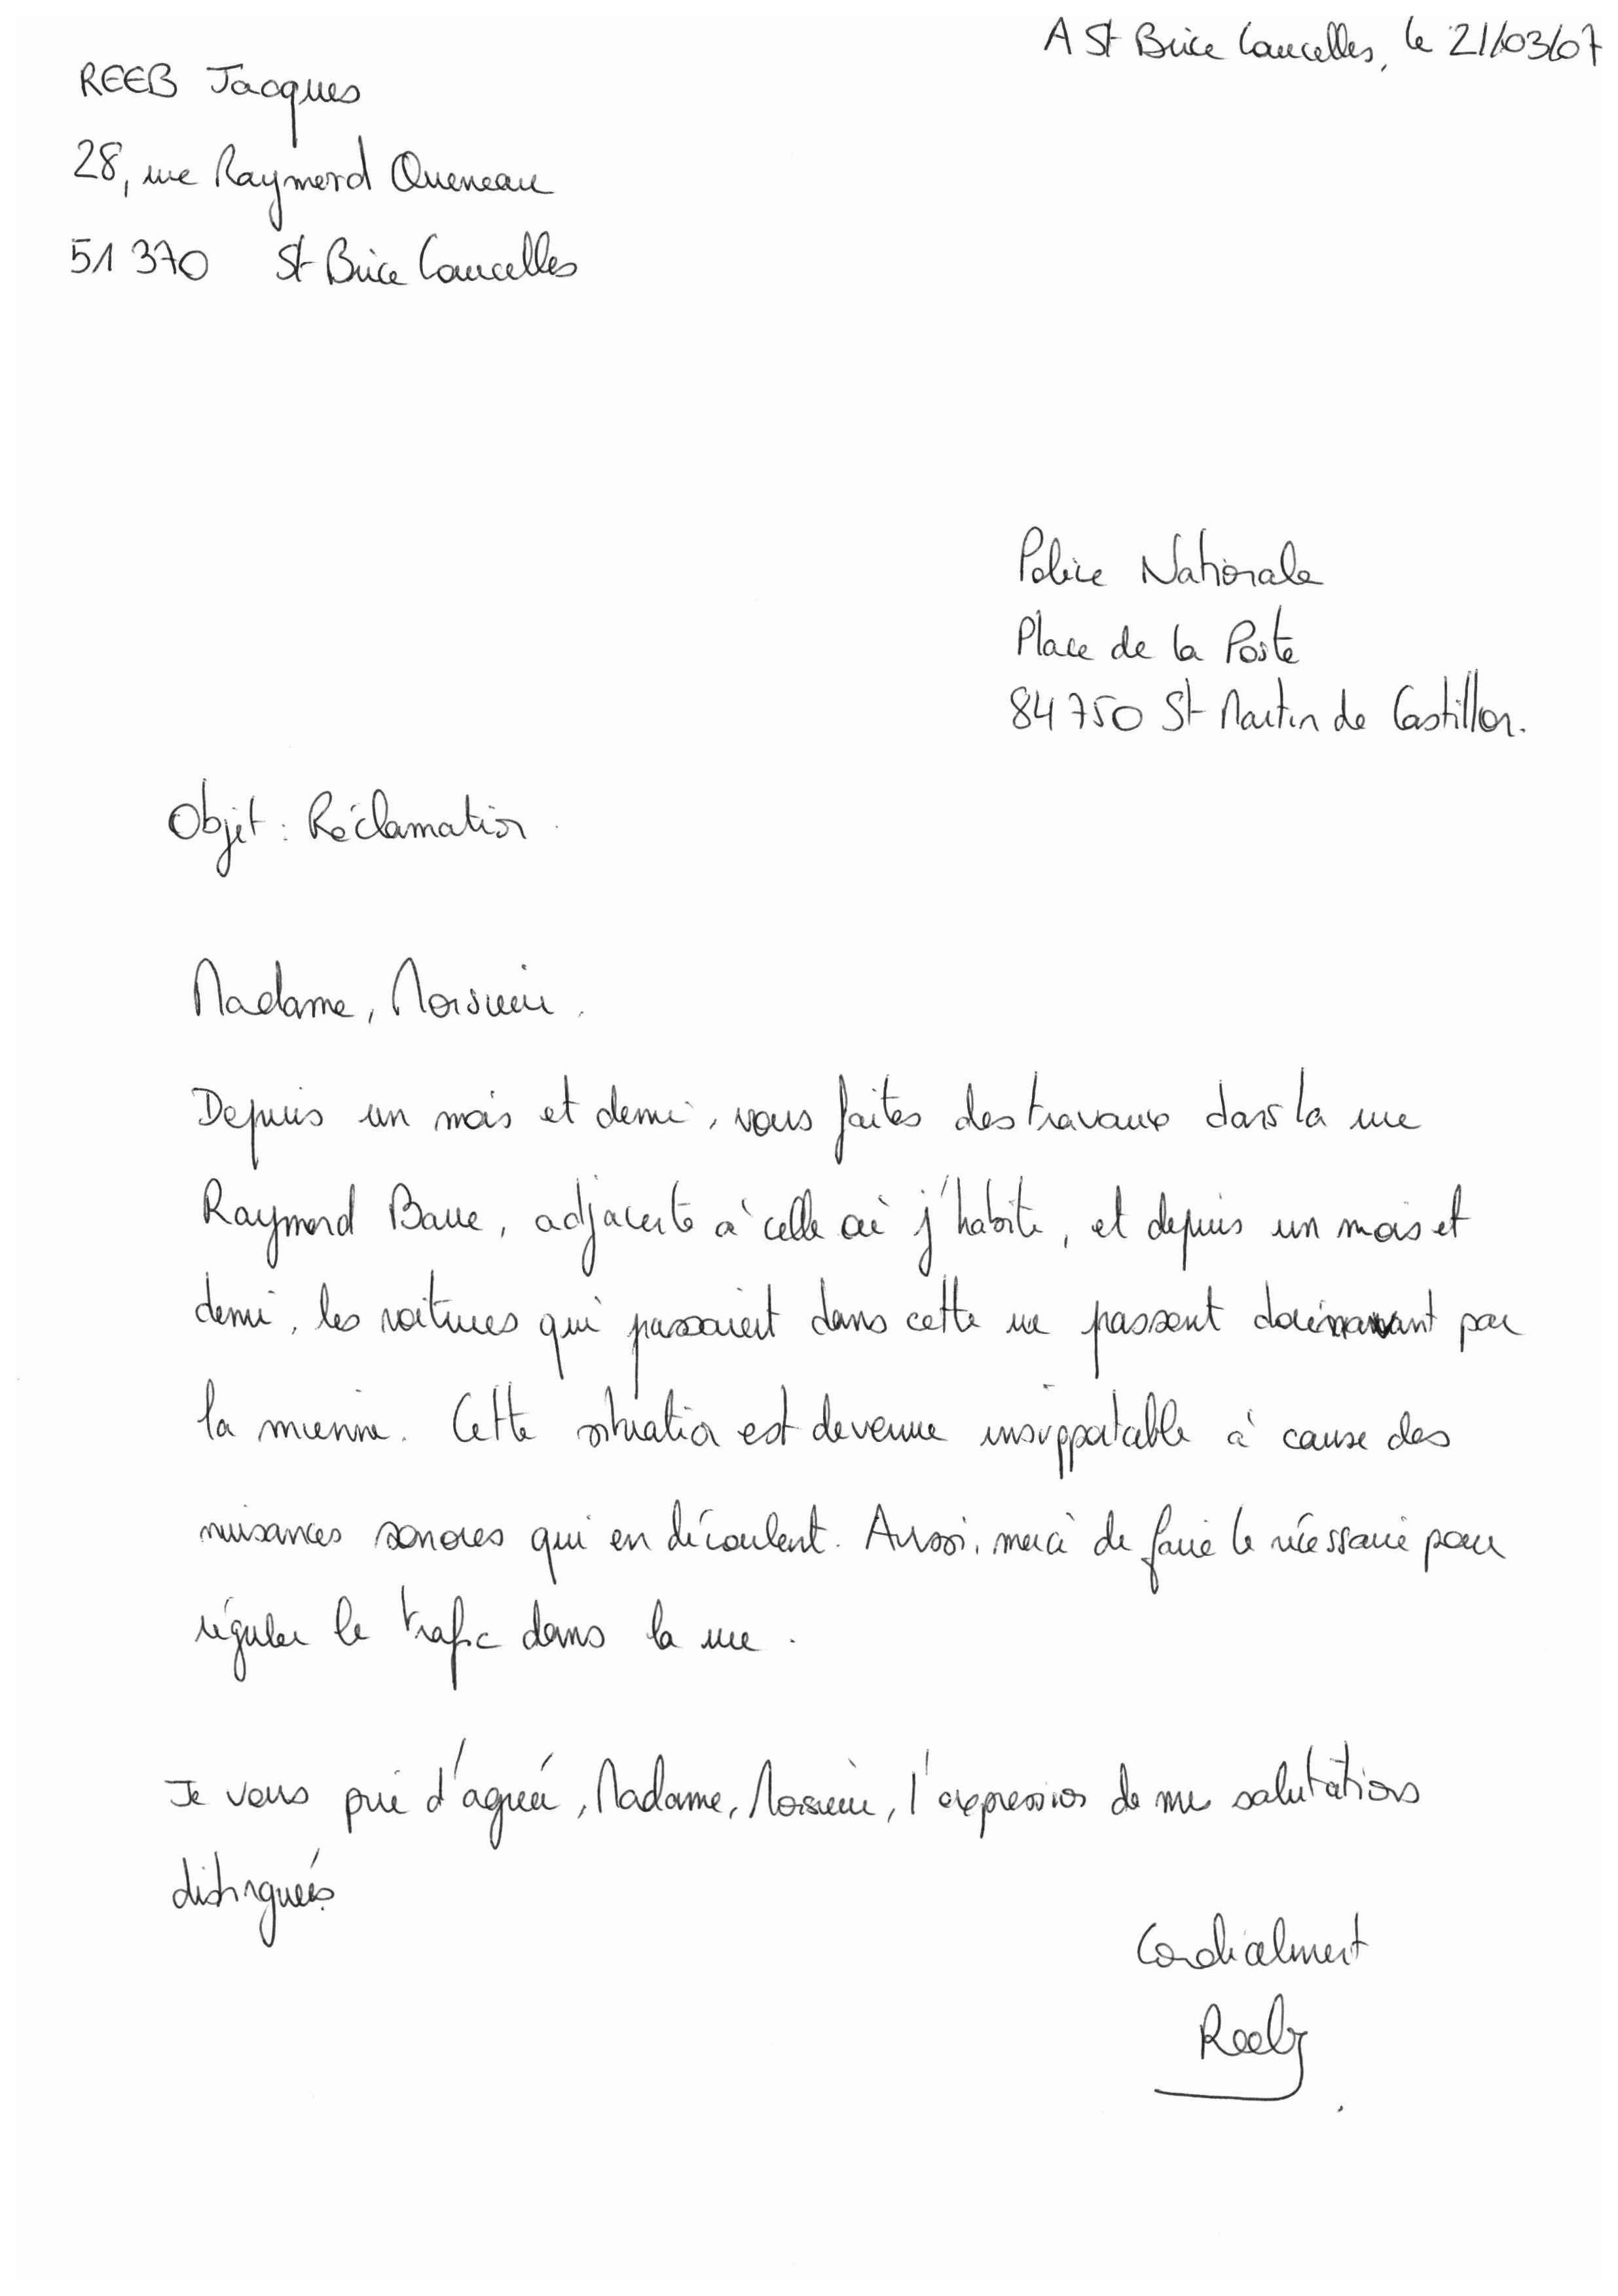 A St Brice Courcelles, le 21/03/07
REEB Jacques
28, rue Raymond Queneau
51 370 St Brice Courcelles
Police Nationale
Place de la Poste
84 750 St Martin de Castillon.
Objet : Réclamation.
Madame, Monsieur,
Depuis un mois et demi, vous faites des travaux dans la rue
Raymond Barre, adjacente à celle où j'habite, et depuis un mois et
demi, les voitures qui passaient dans cette rue passent dorénavant par
la mienne. Cette situation est devenue insupportable à cause des
nuisances sonores qui en découlent. Aussi, merci de faire le nécessaire pour
réguler le trafic dans la rue.
Je vous prie d'agréer, Madame, Monsieur, l'expression de mes salutations
distinguées.
Cordialement
Reeb